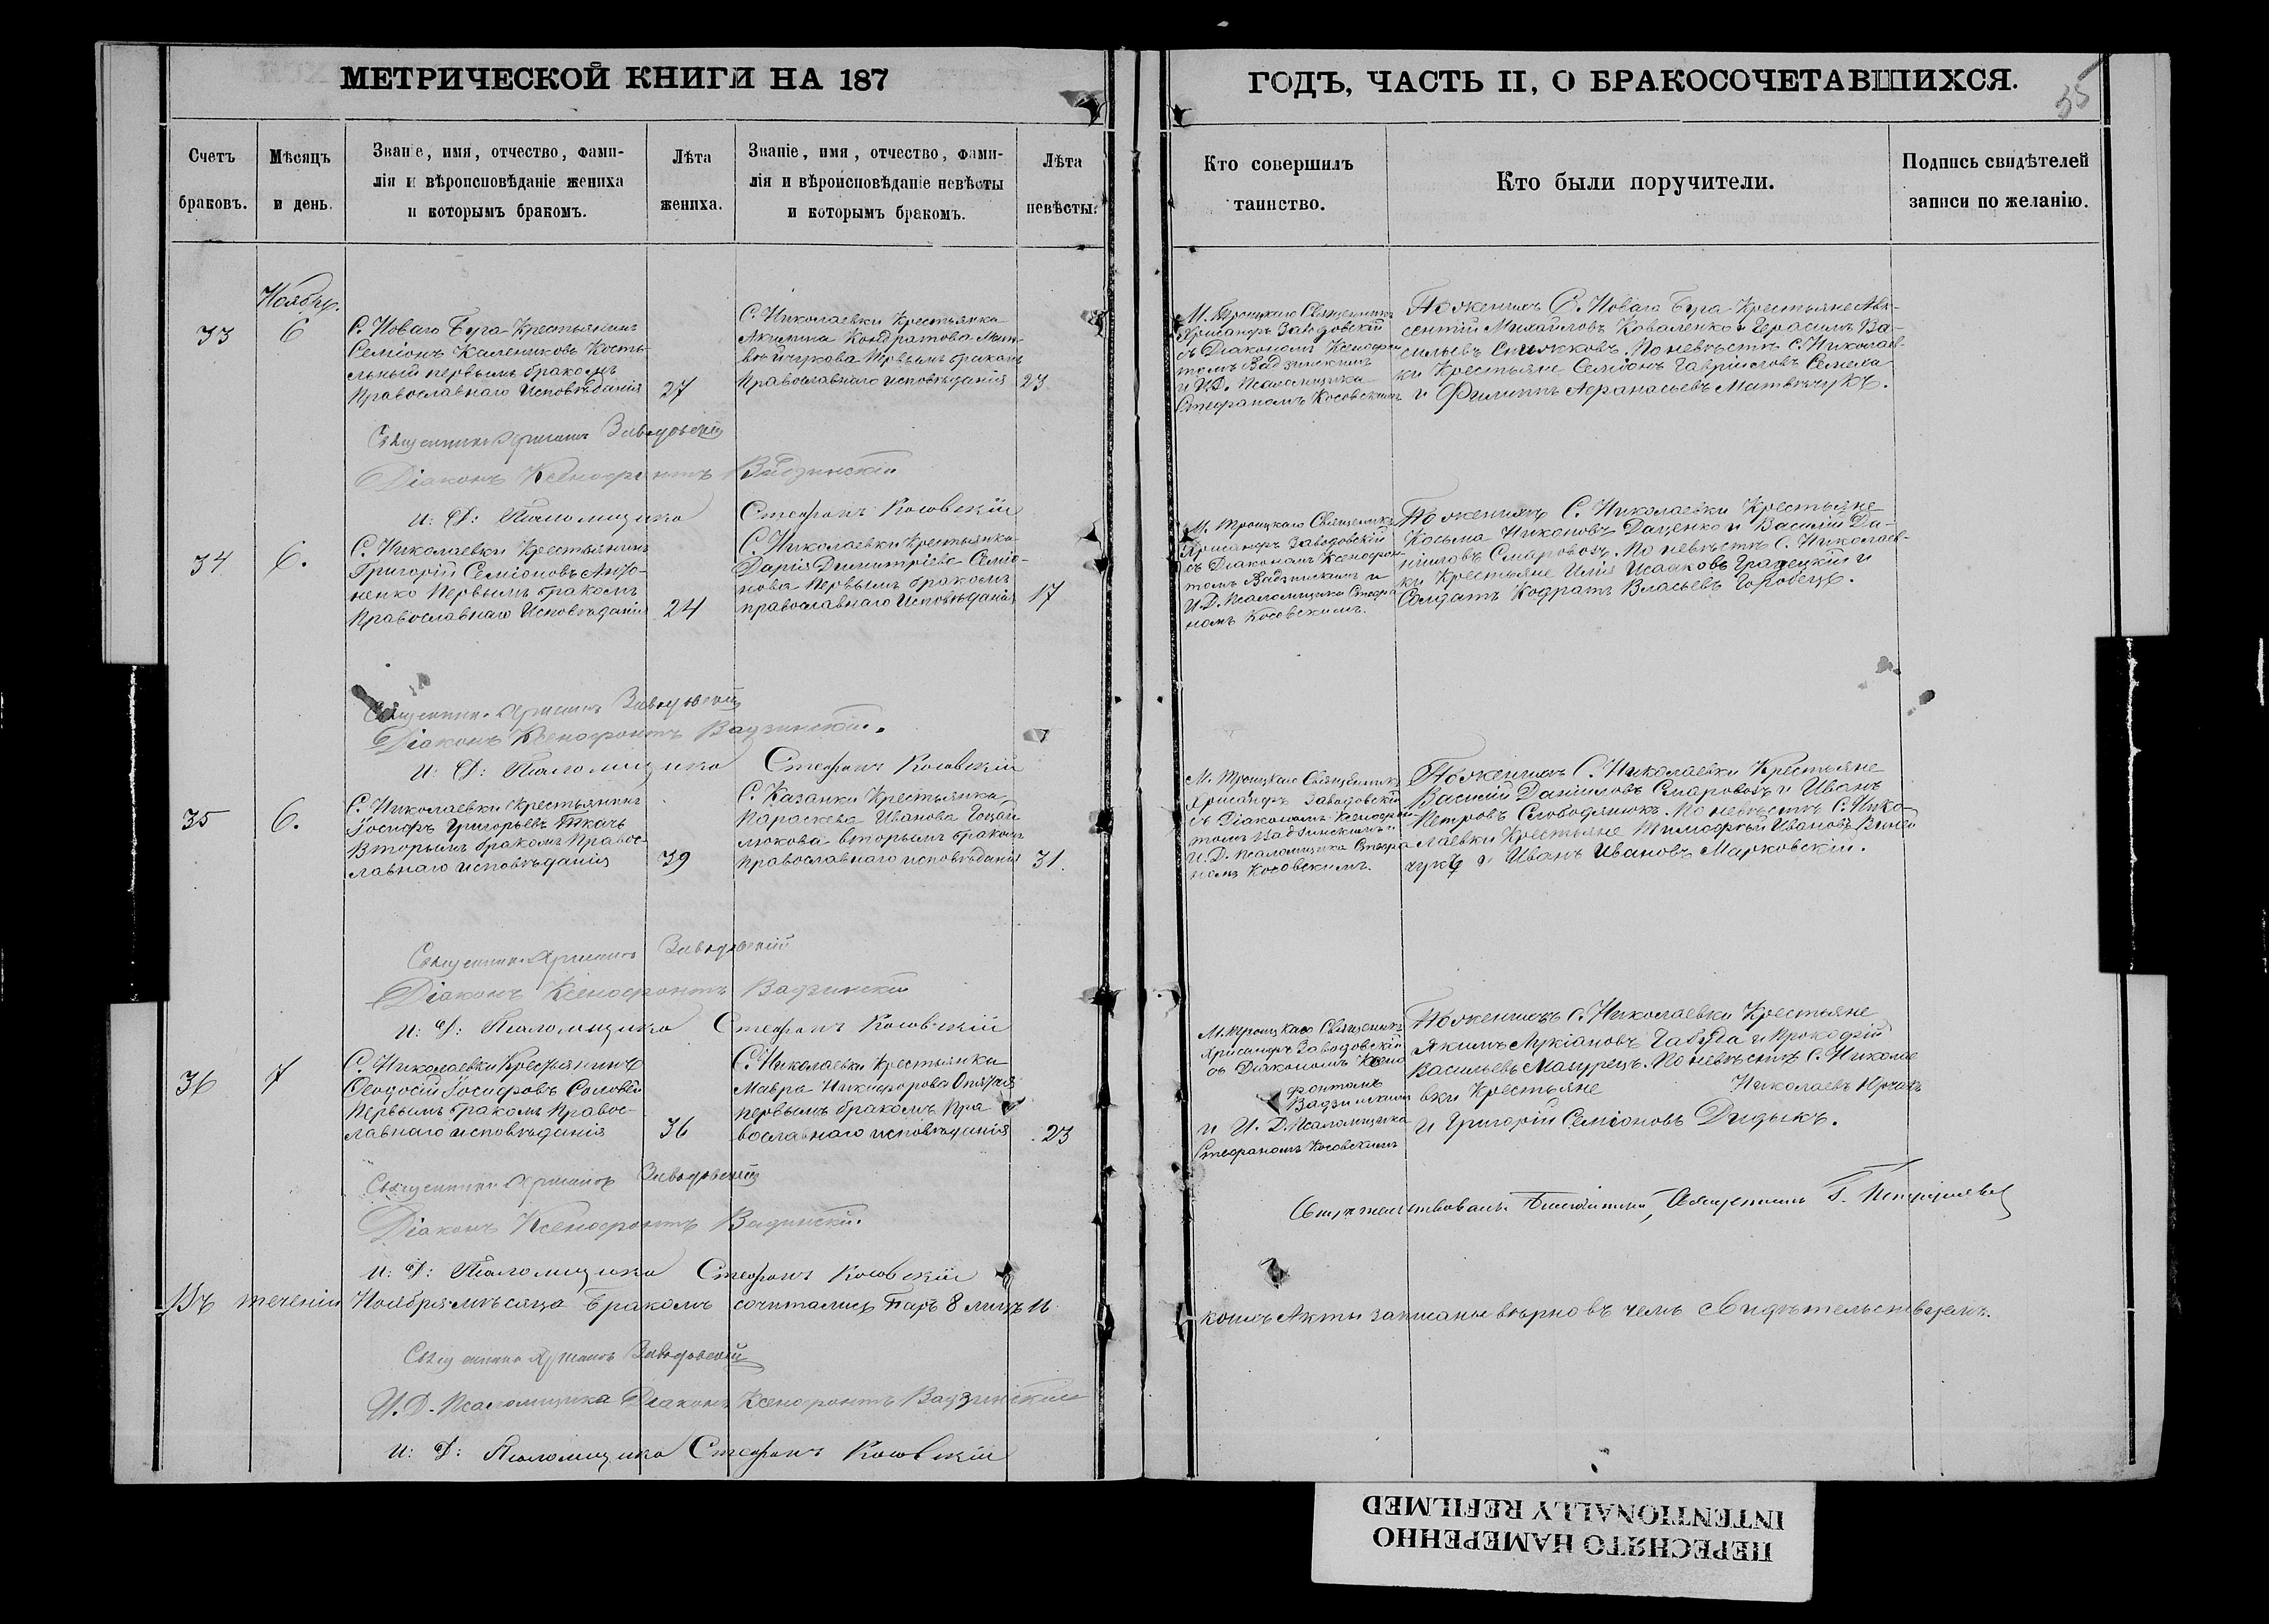 МЕТРИЧЕСКОЙ КНИГИ НА 187
ГОДЪ, ЧАСТЬ II, О БРАКОСОЧЕТАВШИХСЯ.
35
Счетъ браковъ.
Мѣсяцъ и день.
Званіе, имя, отчество, фами-
лія и вѣроисповѣданіе жениха
и которымъ бракомъ.
Лѣта
жениха.
Званіе, имя, отчество, фами-
лія и вѣроисповѣданіе невѣсты
и которымъ бракомъ.
Лѣта
невѣсты.
Кто совершилъ
таинство.
Кто были поручители.
Подпись свидѣтелей
записи по желанію.
Ноябрь.
33
6
С. Новаго Буга Крестьянинъ
Семіонъ Калениковъ Косте-
льный первымъ бракомъ
Православнаго Исповѣданія
27
С. Николаевки Крестьянка
Акилина Кондратова Мат-
вѣйчукова первымъ бракомъ
Православнаго исповѣданія
23
М. Троицкаго Священникъ
Хрисанфъ Заводовскій
съ Діакономъ Ксенофон
томъ Вадзинскимъ
и И.Д. Псаломщика
Стефаномъ Косовскимъ
По женихѣ С. Новаго Буга Крестьяне Авк-
сентій Михайловъ Коваленко и Герасимъ Ва-
сильевъ. По невѣстѣ С. Николаев-
ки Крестьяне Семіонъ Гавріиловъ
и Филиппъ Афанасьевъ Матвѣйчукъ.
Священникъ Хрисанфъ Заводовскій
Діаконъ Ксенофонтъ Вадзинскій
И: Д: Псаломщика Стефанъ Косовскій
34
6.
С. Николаевки Крестьянинъ
Григорій Семіоновъ Анто-
ненко Первымъ бракомъ
Православнаго Исповѣданія
24
С. Николаевки Крестьянка
Дарія Димитріева Семіо-
нова Первымъ бракомъ
православнаго Исповѣданія
17
М. Троицкаго Священникъ
Хрисанфъ Заводовскій
съ Діакономъ Ксенофон-
томъ Вадзинскимъ и
И.Д. Псаломщика Стефа
номъ Косовскимъ.
По женихѣ С. Николаевки Крестьяне
Косьма Никоновъ Даценко и Василій Да-
ніиловъ Смаровозъ. По невѣстѣ С. Николаев-
ки Крестьяне Илія Исааковъ Градецкій и
Солдатъ Кодратъ Власьевъ Горовецъ.
Священникъ Хрисанфъ Заводовскій
Діаконъ Ксенофонтъ Вадзинскій.
И: Д: Псаломщика Стефанъ Косовскій
35
6.
С. Николаевки Крестьянинъ
Іосифъ Григорьевъ Ткачъ
Вторымъ бракомъ Правос-
лавнаго исповѣданія
39
С. Казанки Крестьянка
Параскева Иванова
вторымъ бракомъ
православнаго исповѣданія
31.
М. Троицкаго Священникъ
Хрисанфъ Заводовскій
съ Діакономъ Ксенофон
томъ Вадзинскимъ и
И.Д. Псаломщика Стефа
номъ Косовскимъ.
По женихѣ С. Николаевки Крестьяне
Василій Даниловъ Смаровозъ и Иванъ
Петровъ Слободянюкъ. По невѣстѣ С. Нико-
лаевки Крестьяне Тимофѣй Ивановъ
чукъ и Иванъ Ивановъ Марковскій.
Священникъ Хрисанфъ Заводовскій
Діаконъ Ксенофонтъ Вадзинскій
И: Д: Псаломщика Стефанъ Косовскій
36
7
С. Николаевки Крестьянинъ
Ѳеодосій Іосифовъ Соловей
Первымъ бракомъ Правос-
лавнаго исповѣданія
36
С. Николаевки Крестьянка
Мавра Никифорова
первымъ бракомъ Пра
вославнаго исповѣданія
23
М. Троицкаго Священникъ
Хрисанфъ Заводовскій
съ Діакономъ Ксено
фонтомъ
Вадзинскимъ
и И. Д. Псаломщика
Стефаномъ Косовскимъ
По женихѣ С. Николаевки Крестьяне
Якимъ Лукіановъ Габуда и Прокофій
Васильевъ Мазурецъ. По невѣстѣ С. Николае
вки Крестьяне Николаевъ Юрчакъ
и Григорій Семіоновъ Дидыкъ.
Священникъ Хрисанфъ Заводовскій
Діаконъ Ксенофонтъ Вадзинскій.
И: Д: Псаломщика Стефанъ Косовскій
Свидѣтельствовалъ Благочинный, Священникъ
Въ теченіи Ноября мѣсяца бракомъ сочитались Паръ 8 лицъ 16
коихъ Акты записаны вѣрно въ чемъ свидѣтельствуемъ.
Священникъ Хрисанфъ Заводовскій
И. Д. Псаломщика Діаконъ Ксенофонтъ Вадзинскій
И: Д: Псаломщика Стефанъ Косовскій
ПЕРЕСНЯТО НАМЕРЕННО
INTENTIONALLY REFILMED